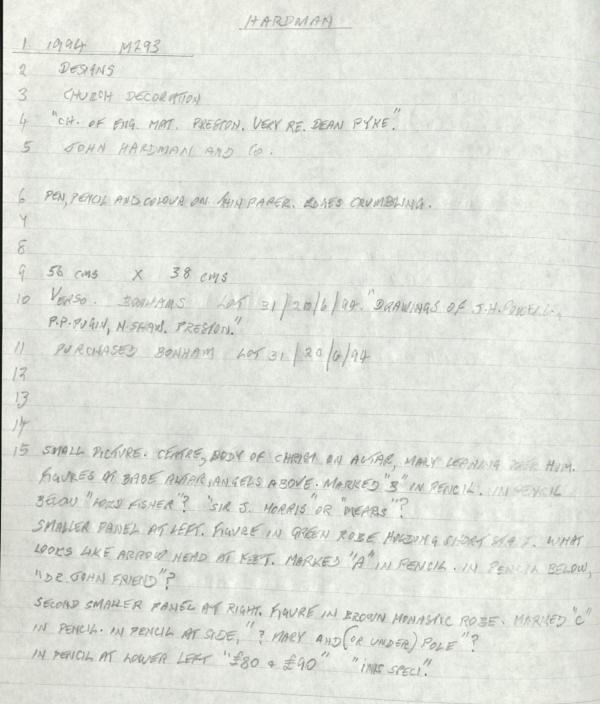 HARDMAN
1 1994 M293
2 DESIGNS
3 CHURCH DECORATION
4 "CH. OF ENG. MAT. PRESTON. VERY RE. DEAN PYKE."
5 JOHN HARDMAN AND CO.
6 PEN, PENCIL AND COLOUR ON THIN PAPER. EDGES CRUMBLING.
7
8
9 56 cms X 38 cms
10 VERSO. BONHAMS LOT 31/20/6/94. "DRAWINGS OF J.H. POWELL,
P.P. PUGIN, N. SHAW. PRESTON."
11 PURCHASED BONHAM LOT 31/20/6/94
12
13
14
15 SMALL PICTURE. CENTRE, BODY OF CHRIST ON ALTAR, MARY LEANING OVER HIM.
FIGURES AT BASE ALTAR, ANGELS ABOVE. MARKED "B" IN PENCIL. IN PENCIL
BELOW "FISHER"? "SIR J. MORRIS" OR "MEARS"?
SMALLER PANEL AT LEFT. FIGURE IN GREEN ROBE HOLDING SHORT WHAT
LOOKS LIKE ARROW HEAD AT FEET. MARKED "A" IN PENCIL. IN PENCIL BELOW,
"DR. JOHN FRIEND"?
SECOND SMALLER PANEL AT RIGHT. FIGURE IN BROWN MONASTIC ROBE. MARKED "C"
IN PENCIL. IN PENCIL AT SIDE, "? MARY AND (OR UNDER) POLE"?
IN PENCIL AT LOWER LEFT "£80 & £90" "SPECI."